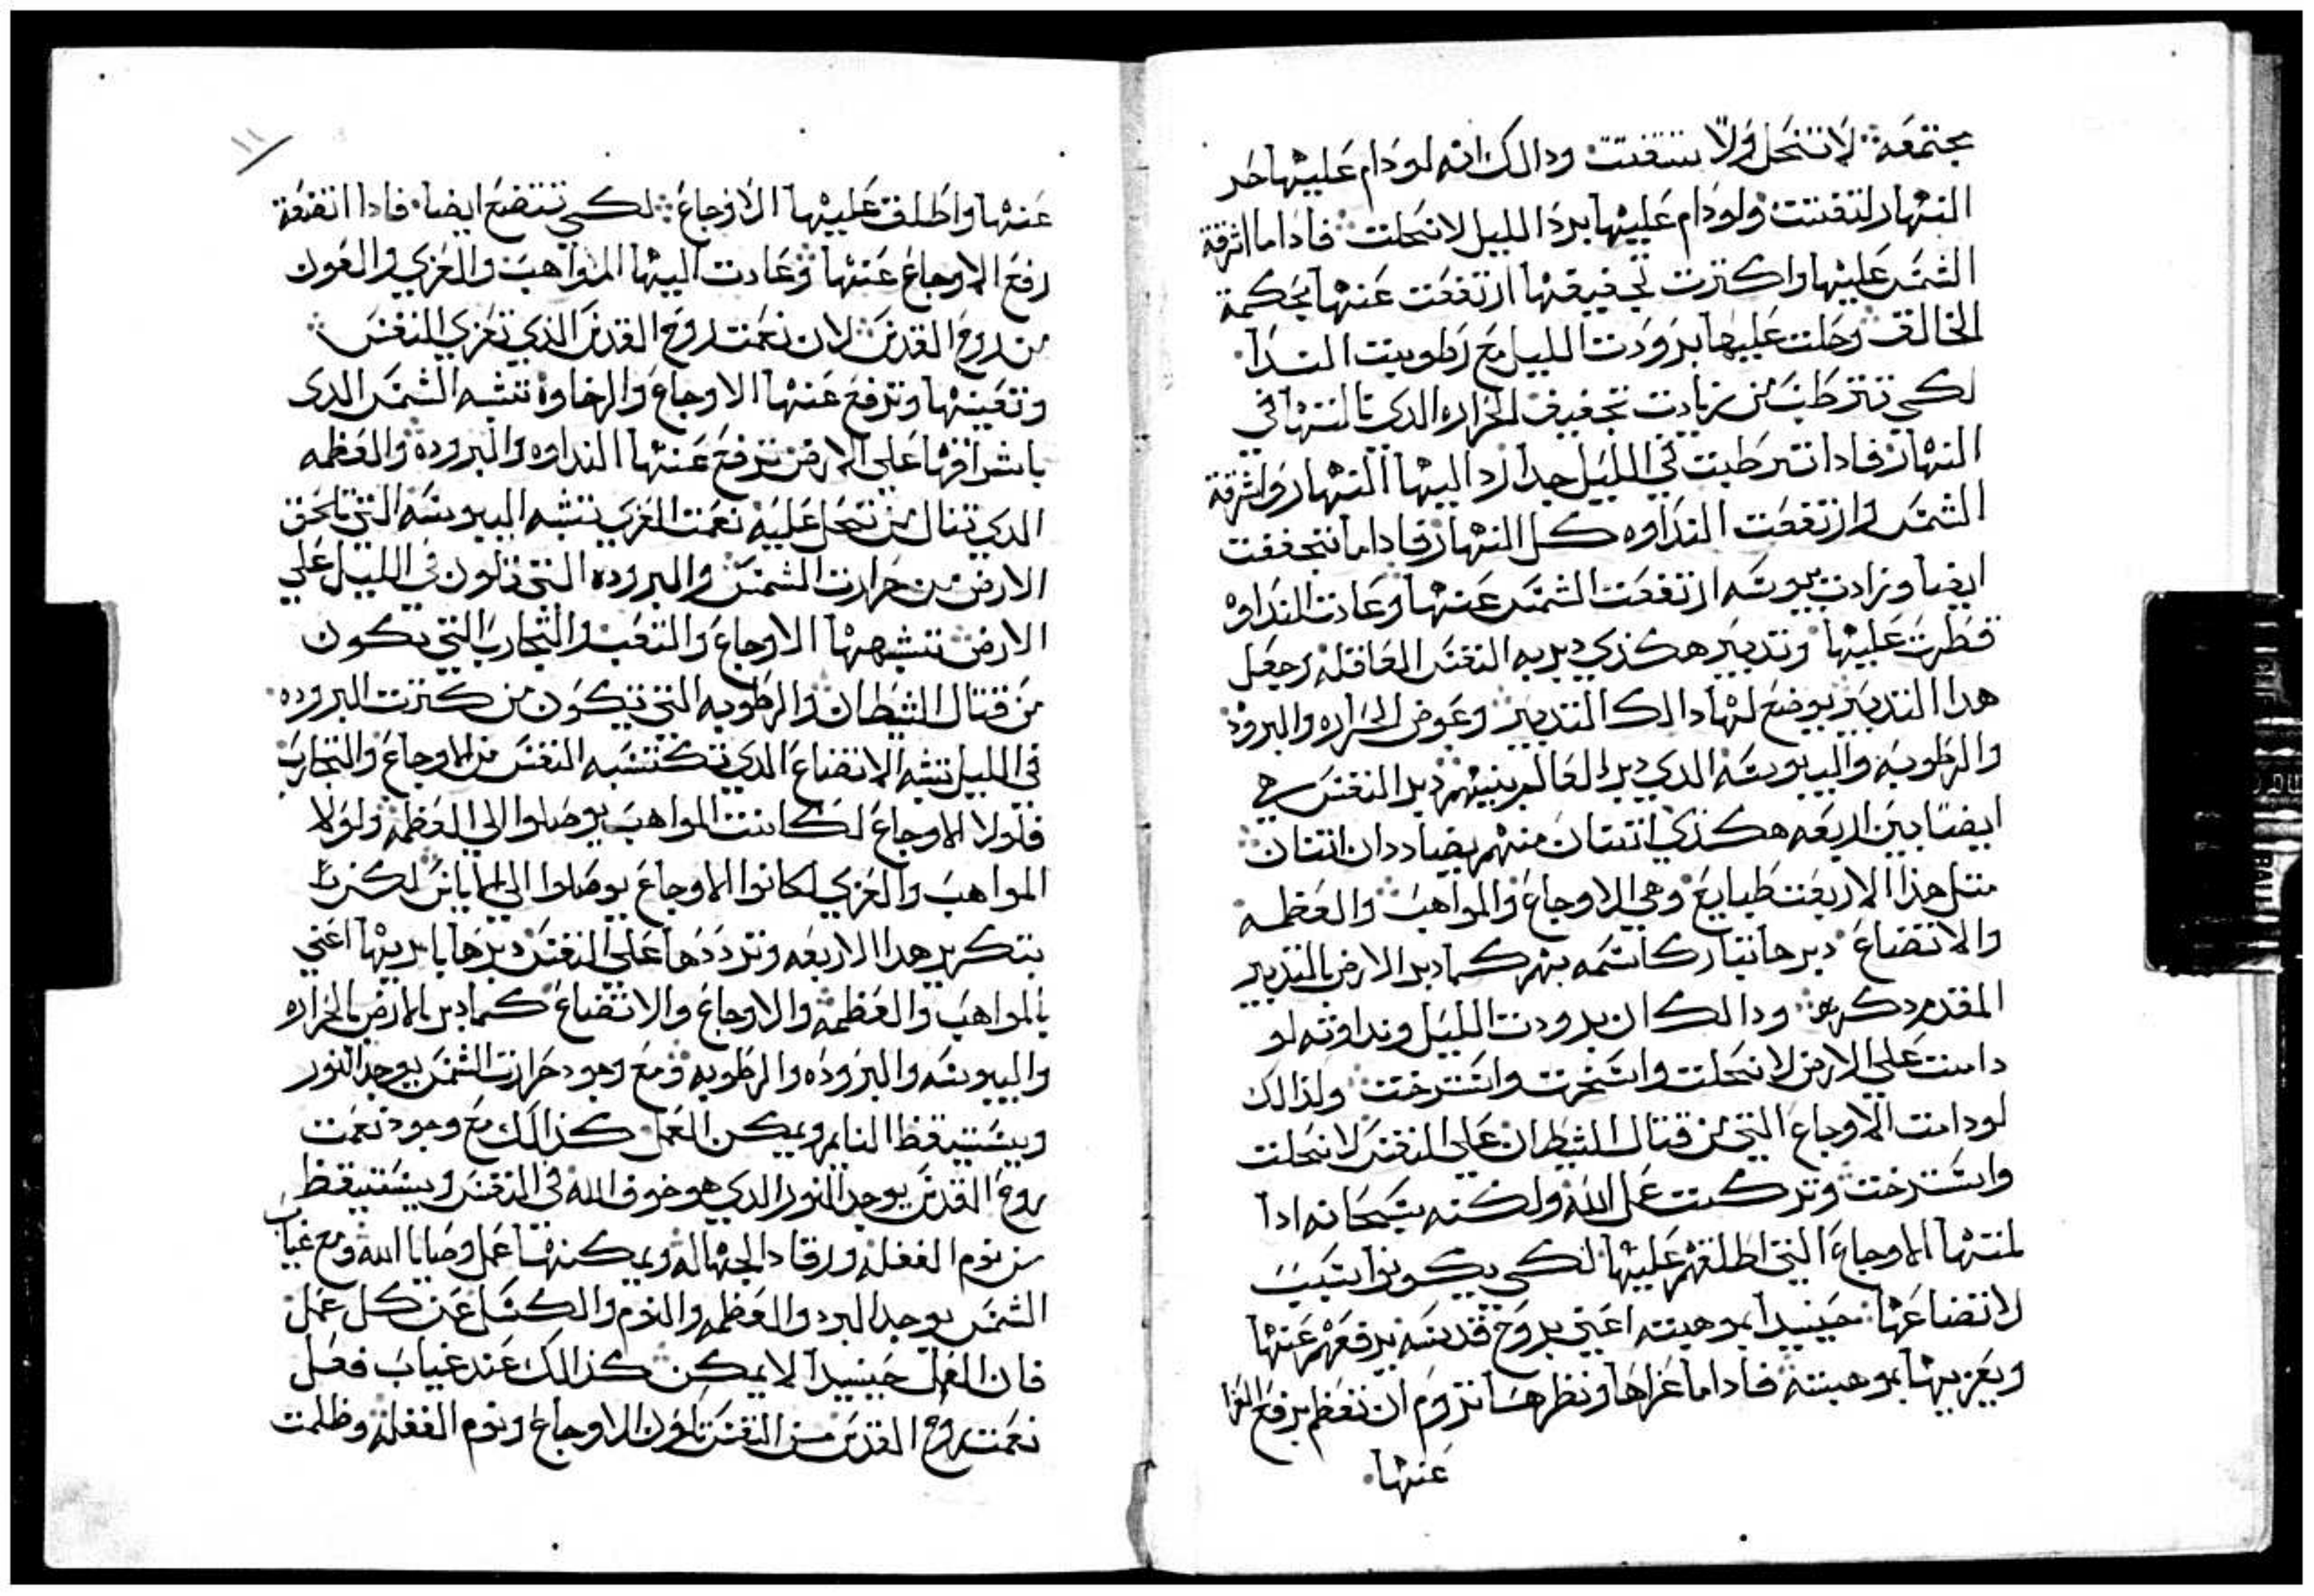 مجتمعه لا تنحل ولا تتفتت ودالك انه لو دام عليها حر
النهار لتفتتت ولو دام عليها برد الليل لانحلت فادا ما اشرقة
الشمس عليها واكترت تجفيفها ارتفعت عنها بحكمة
الخالق وحلت عليها برودت الليل مع رطوبيت الندا
لكي تترطب من زيادت تجفيف الحراره الدي نالتها في
النهار فادا ترطبت في الليل جدا رد اليها النهار واشرقة
الشمس وارتفعت النداوه كل النهار فادا ما تجففت
ايضا وزادت يبوسه ارتفعت الشمس عنها وعادت النداوه
قطرت عليها وتدبير هكذي دبر به النفس العاقله وجعل
هدا التدبير يوضع لها دالك التدبير وعوض الحراره والبروده
والرطوبه واليبوسه الدي دبر العالم بينهم دبر النفس هي
ايضا بين اربعه هكذي اتنتان منهم يضاددان اتنتان
متل هذا الاربعت طبايع وهي الاوجاع والمواهب والعظمه
والاتضاع دبرها تبارك اسمه بهم كما دبر الارض بالتدبير
المقدم دكره ودالك ان برودت الليل ونداوته لو
دامت علي الارض لانحلت واسترخت ولذالك
لو دامت الاوجاع التي من قتال الشيطان علي النفس لانحلت
واسترخت وتركت عمل الله ولكنه سبحانه ادا
لمتها الاوجاع التي اطلقهم عليها لكي يكونوا سبب
لاتضاعها حينيدا بموهبته اعني بروح قدسه يرفعهم عنها
ويعزيها بموهبته فادا ما عزاها ونظرها تروم ان تعظم يرفع العزا
عنها
١١
عنها واطلق عليها الاوجاع لكي تتضع ايضا فادا اتضعة
رفع الاوجاع عنها وعادت اليها المواهب والعزي والعون
من روح القدس لان نعمت روح القدس الذي تعزي النفس
وتعينها وترفع عنها الاوجاع والرخاوة تشبه الشمس الدى
باشراقها على الارض ترفع عنها النداوه والبرودة والعظمه
الدي تنال من تحل عليه نعمت العزي تشبه اليبوسه التي تلحق
الارض من حرارت الشمس والبروده التي تكون في الليل علي
الارض تشبهها الاوجاع والتعب والتجارب التي تكون
من قتال الشيطان والرطوبه التي تتكون من كترت البروده
في الليل تشبه الاتضاع الدي تكتسبه النفس من الاوجاع والتجارب
فلولا الاوجاع لكانت المواهب يوصلوا الي العظمه ولولا
المواهب والعزي لكانوا الاوجاع يوصلوا الي الاياس لكن
بتكرير هدا الاربعه وترددها علي النفس دبرها باريها اعني
بالمواهب والعظمه والاوجاع والاتضاع كما دبر الارض بالحراره
واليبوسه والبروده والرطوبه ومع وجود حرارت الشمس يوجد النور
ويستيقظ النايم ويمكن العمل كذالك مع وجود نعمت
روح القدس يوجد النور الدي هو خوف الله في النفس ويستيقظ
من نوم الغفله ورقاد الجهاله ويمكنها عمل وصايا الله ومع غياب
الشمس يوجد البرد والعظمه والنوم والكسل عن كل عمل
فان العمل حينيدا لا يمكن كذالك عند غياب فعل
نعمت روح القدس من النفس تكون الاوجاع ونوم الغفله وظلمت